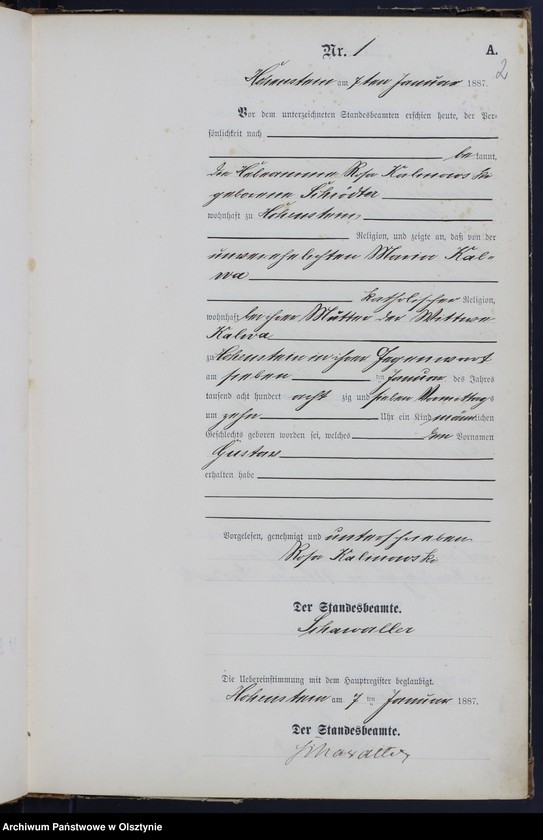 Nr. 1
A.
2
Hohenstein am 7ten Januar 1887.
Vor dem unterzeichneten Standesbeamten erschien heute, der Per-
sönlichkeit nach
be kannt,
die Hebeamme Rosa Kalinowski
geborene Schrödter
wohnhaft zu Hohenstein,
Religion, und zeigte an, daß von der
unverehelichten Maria Kal-
wa
katholischer Religion,
wohnhaft bei ihrer Mutter der Wittwe
Kalwa
zu Hohenstein in ihrer Gegenwart
am sieben ten Januar des Jahres
tausend acht hundert acht zig und sieben Vormittags
um zehn Uhr ein Kind männlichen
Geschlechts geboren worden sei, welches den Vornamen
Gustav
erhalten habe
Vorgelesen, genehmigt und unterschrieben
Rosa Kalinowski
Der Standesbeamte.
Schawaller
Die Uebereinstimmung mit dem Hauptregister beglaubigt.
Hohenstein am 7 ten Januar 1887.
Der Standesbeamte.
Schawaller
Archiwum Państwowe w Olsztynie